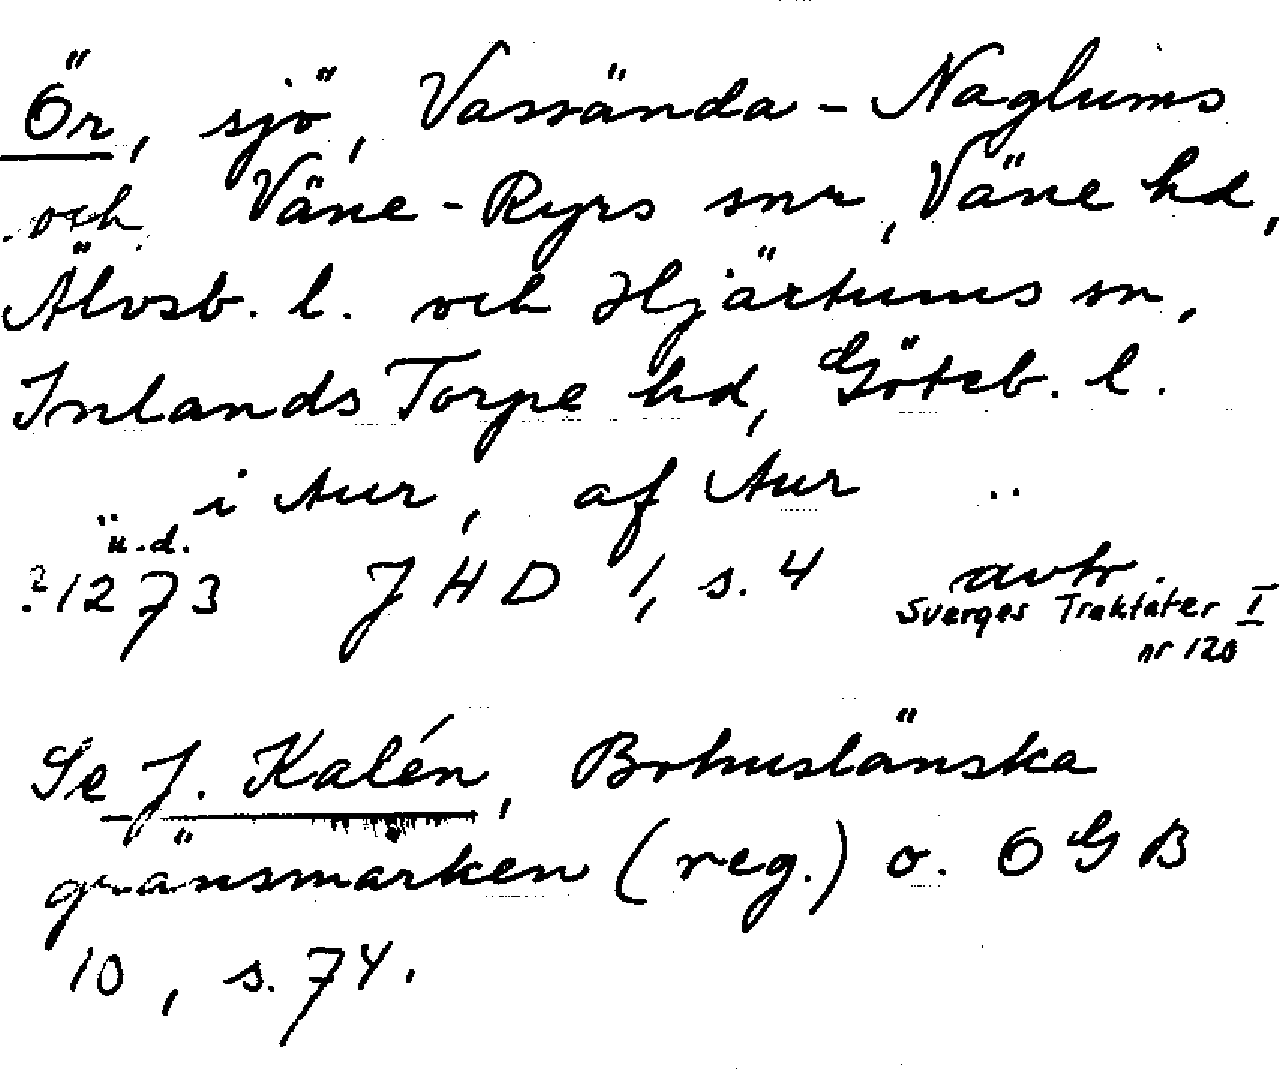 Ör, sjö, Vassända-Naglums
och Väne-Ryrs snr, Väne hd,
Älvsb. l. och Hjärtums sn,
Inlands Torpe hd, Göteb. l.
i Aur, af Aur ..
u.d.
?1273 JHD 1, s. 4 avtr.
Sverges Traktater I
nr 120
Se J. Kalén, Bohuslänska
gränsmärken (reg.) o. OGB
10, s. 74.